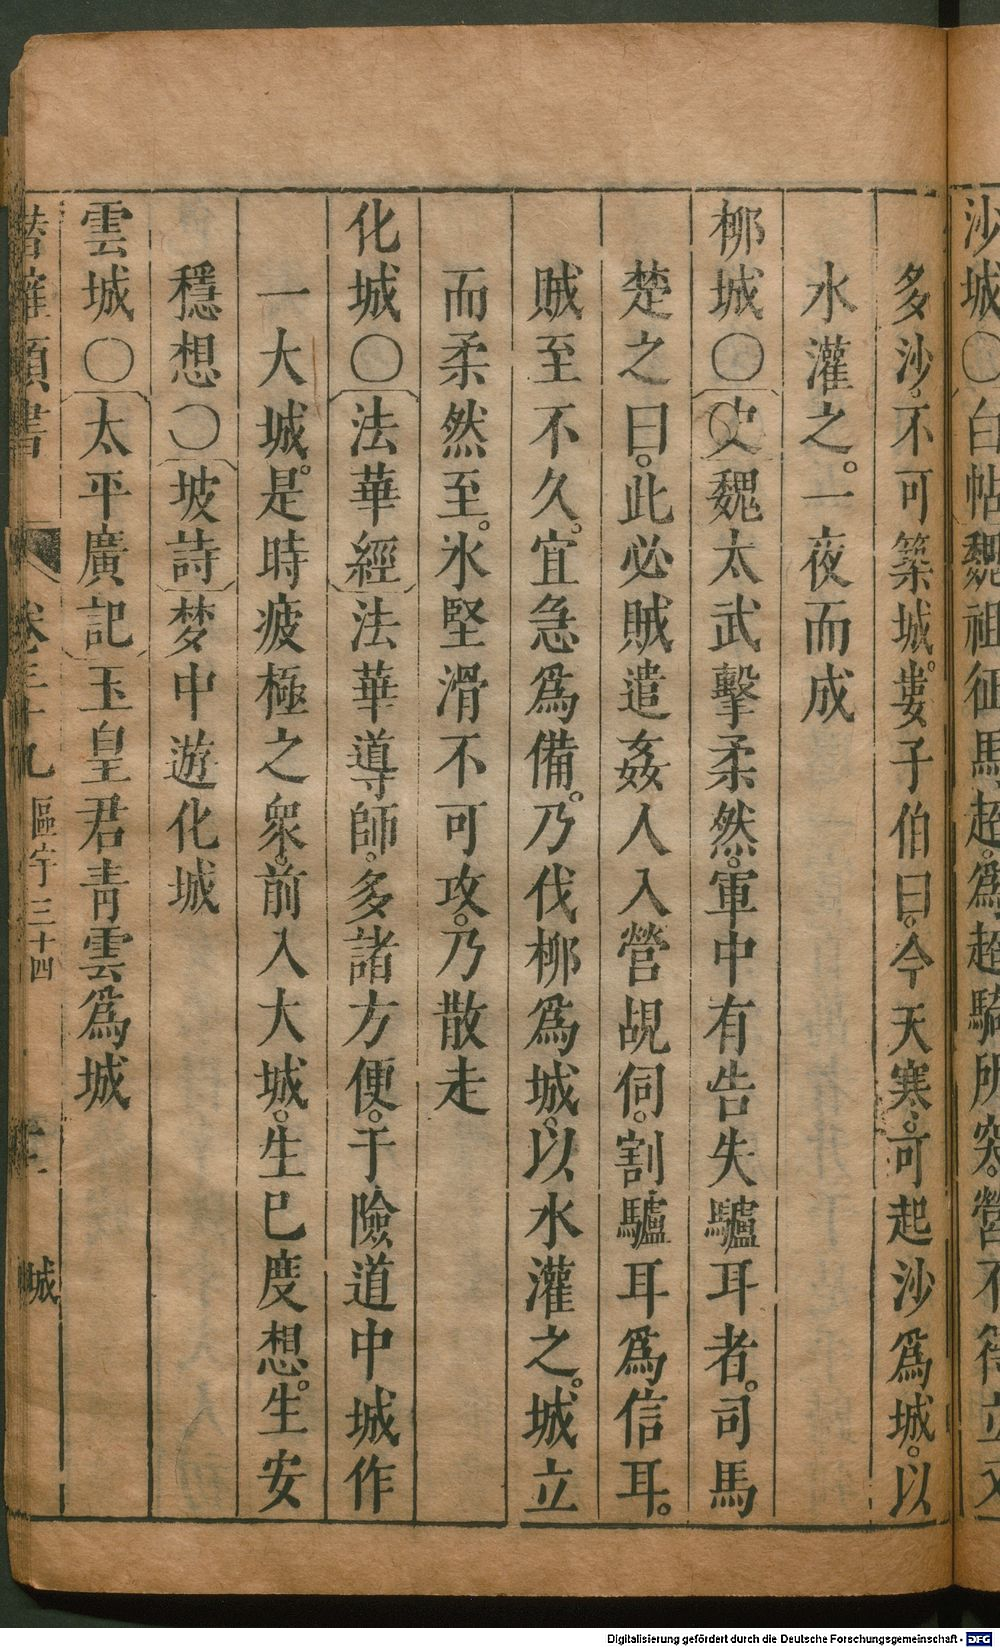 沙城〇白帖魏祖征馬超。爲超騎所突。營不得立又
多沙。不可築城。婁子伯曰。今天寒。可起沙爲城。以
水灌之。一夜而成
柳城〇史魏太武擊柔然。軍中有告失驢耳者。司馬
楚之曰。此必賊遣姦人入營覘伺。割驢耳爲信耳。
賊至不久。宜急爲備。乃伐柳爲城。以水灌之。城立
而柔然至。氷堅滑不可攻。乃散走
化城〇法華經法華導師。多諸方便。于險道中城作
一大城。是時疲極之衆。前入大城。生已度想。生安
穩想〇坡詩梦中遊化城
雲城〇太平廣記玉皇君青雲爲城
潛確類書 卷三十九 區宇三十四 城
Digitalisierung gefördert durch die Deutsche Forschungsgemeinschaft - DFG